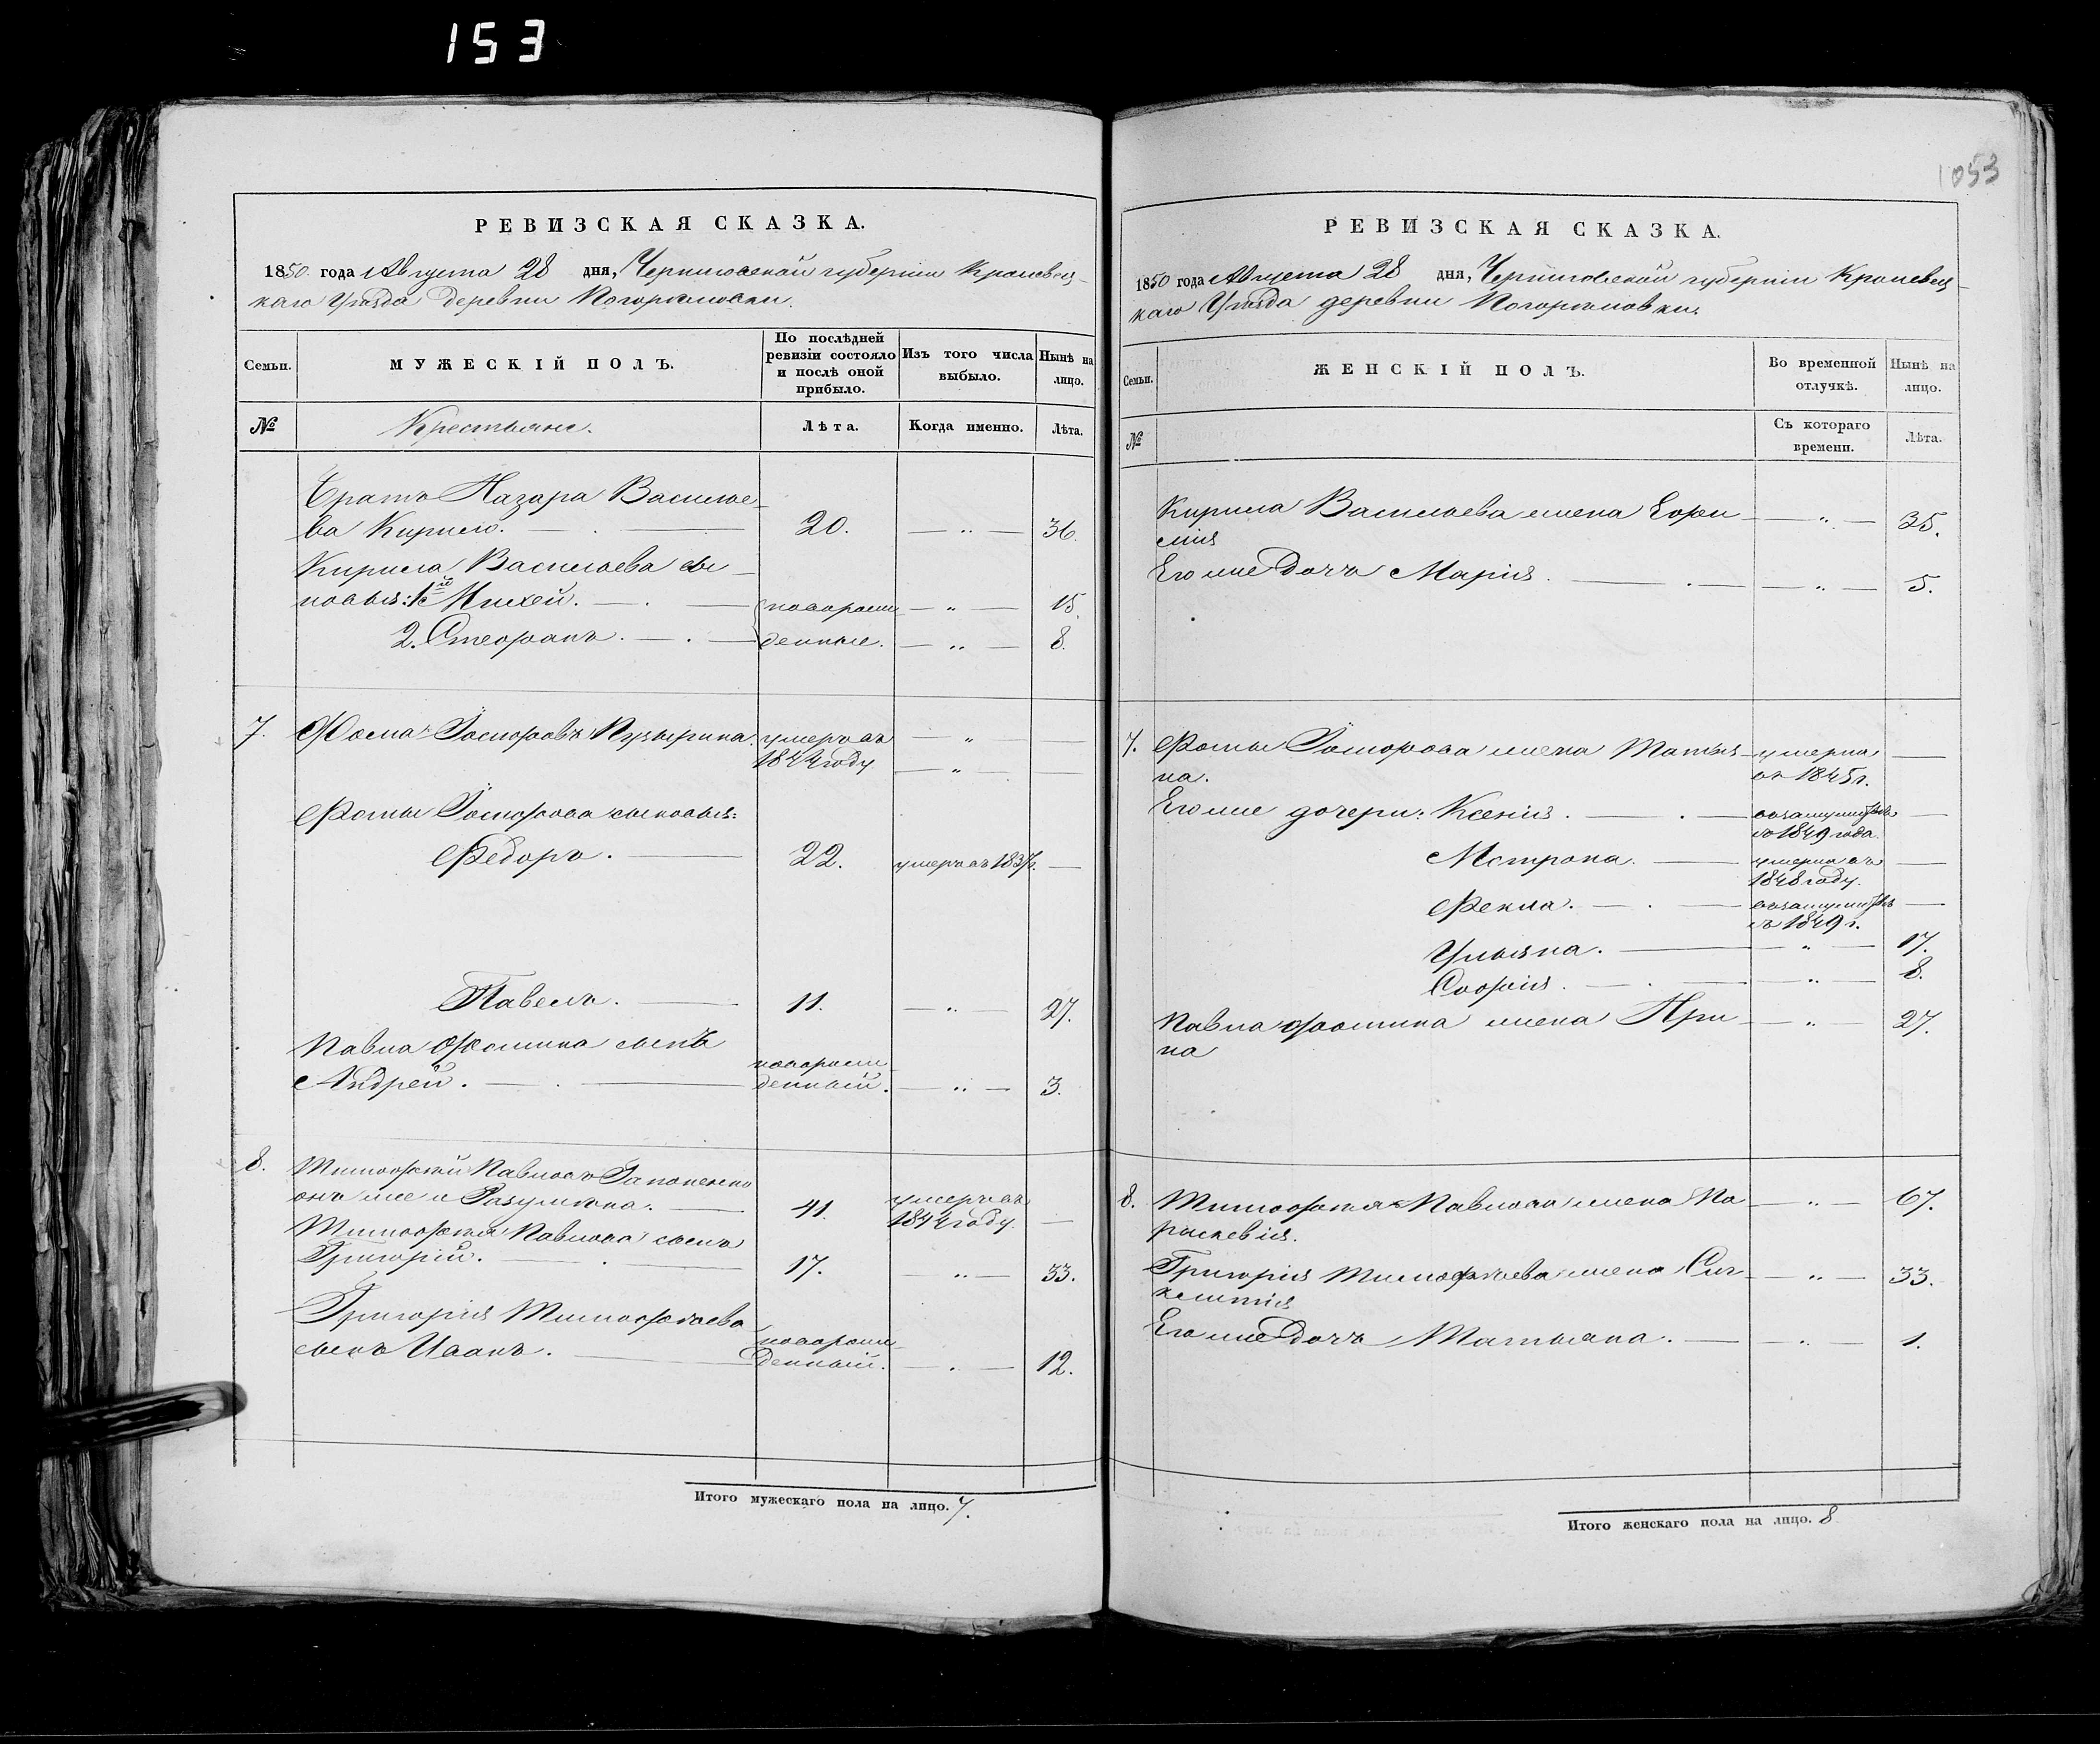 153
1053
РЕВИЗСКАЯ СКАЗКА.
1850 года Августа 28 дня, Черниговской губерніи Кролевец-
каго Уѣзда деревни Погорѣловки.
Семьи.
МУЖЕСКІЙ ПОЛЪ.
По послѣдней
ревизіи состояло
и послѣ оной
прибыло.
Изъ того числа
выбыло.
Нынѣ на
лицо.
№
Крестьяне.
Лѣта.
Когда именно.
Лѣта.
Братъ Назара Василье-
ва Кирило. 20. — „ — 36.
Кирила Васильева сы-
новья: 1й Михей. новорож- — „ — 15.
2. Стефанъ. денные. — „ — 8.
7. Фома Іосифовъ умеръ въ — „ —
1844 году — „ —
Фомы Іосифова сыновья:
Федоръ. 22. умеръ въ 1837г. —
Павелъ. 11. — „ — 27.
Павла Фомина сынъ новорож-
Андрей. денный. — „ — 3.
8. Тимофѣй Павловъ Гапоненко
онъ же и 41. умеръ въ
1844 году. —
Тимофѣя Павлова сынъ
Григорій. 17. „ — 33.
Григорія Тимофѣева
сынъ Иванъ. новорож-
денный. — „ — 12.
Итого мужескаго пола на лицо. 7.
РЕВИЗСКАЯ СКАЗКА.
1850 года Августа 28 дня, Черниговской губерніи Кролевец-
каго Уѣзда деревни Погорѣловки.
Семьи.
ЖЕНСКІЙ ПОЛЪ.
Во временной
отлучкѣ.
Нынѣ на
лицо.
№
Съ котораго
времени.
Лѣта.
Кирила Васильева жена Ефи- — „ — 35.
мія
Его же дочь Марія. — „ — 5.
7. Фомы Іосифова жена Татья- умерла —
на. въ 1845г.
Его же дочери: Ксенія. взамужествѣ —
съ 1849 года.
Мотрона. умерла въ —
1848 году.
Фекла. взамужествѣ —
съ 1849 г.
Ульяна. — „ — 17.
Софія. — „ — 8.
Павла Фомина жена Ири- — „ — 27.
на
8. Тимофѣя Павлова жена Па- — „ — 67.
раскевія.
Григорія Тимофѣева жена — „ — 33.
Его же дочь Татьяна. — „ — 1.
Итого женскаго пола на лицо. 8